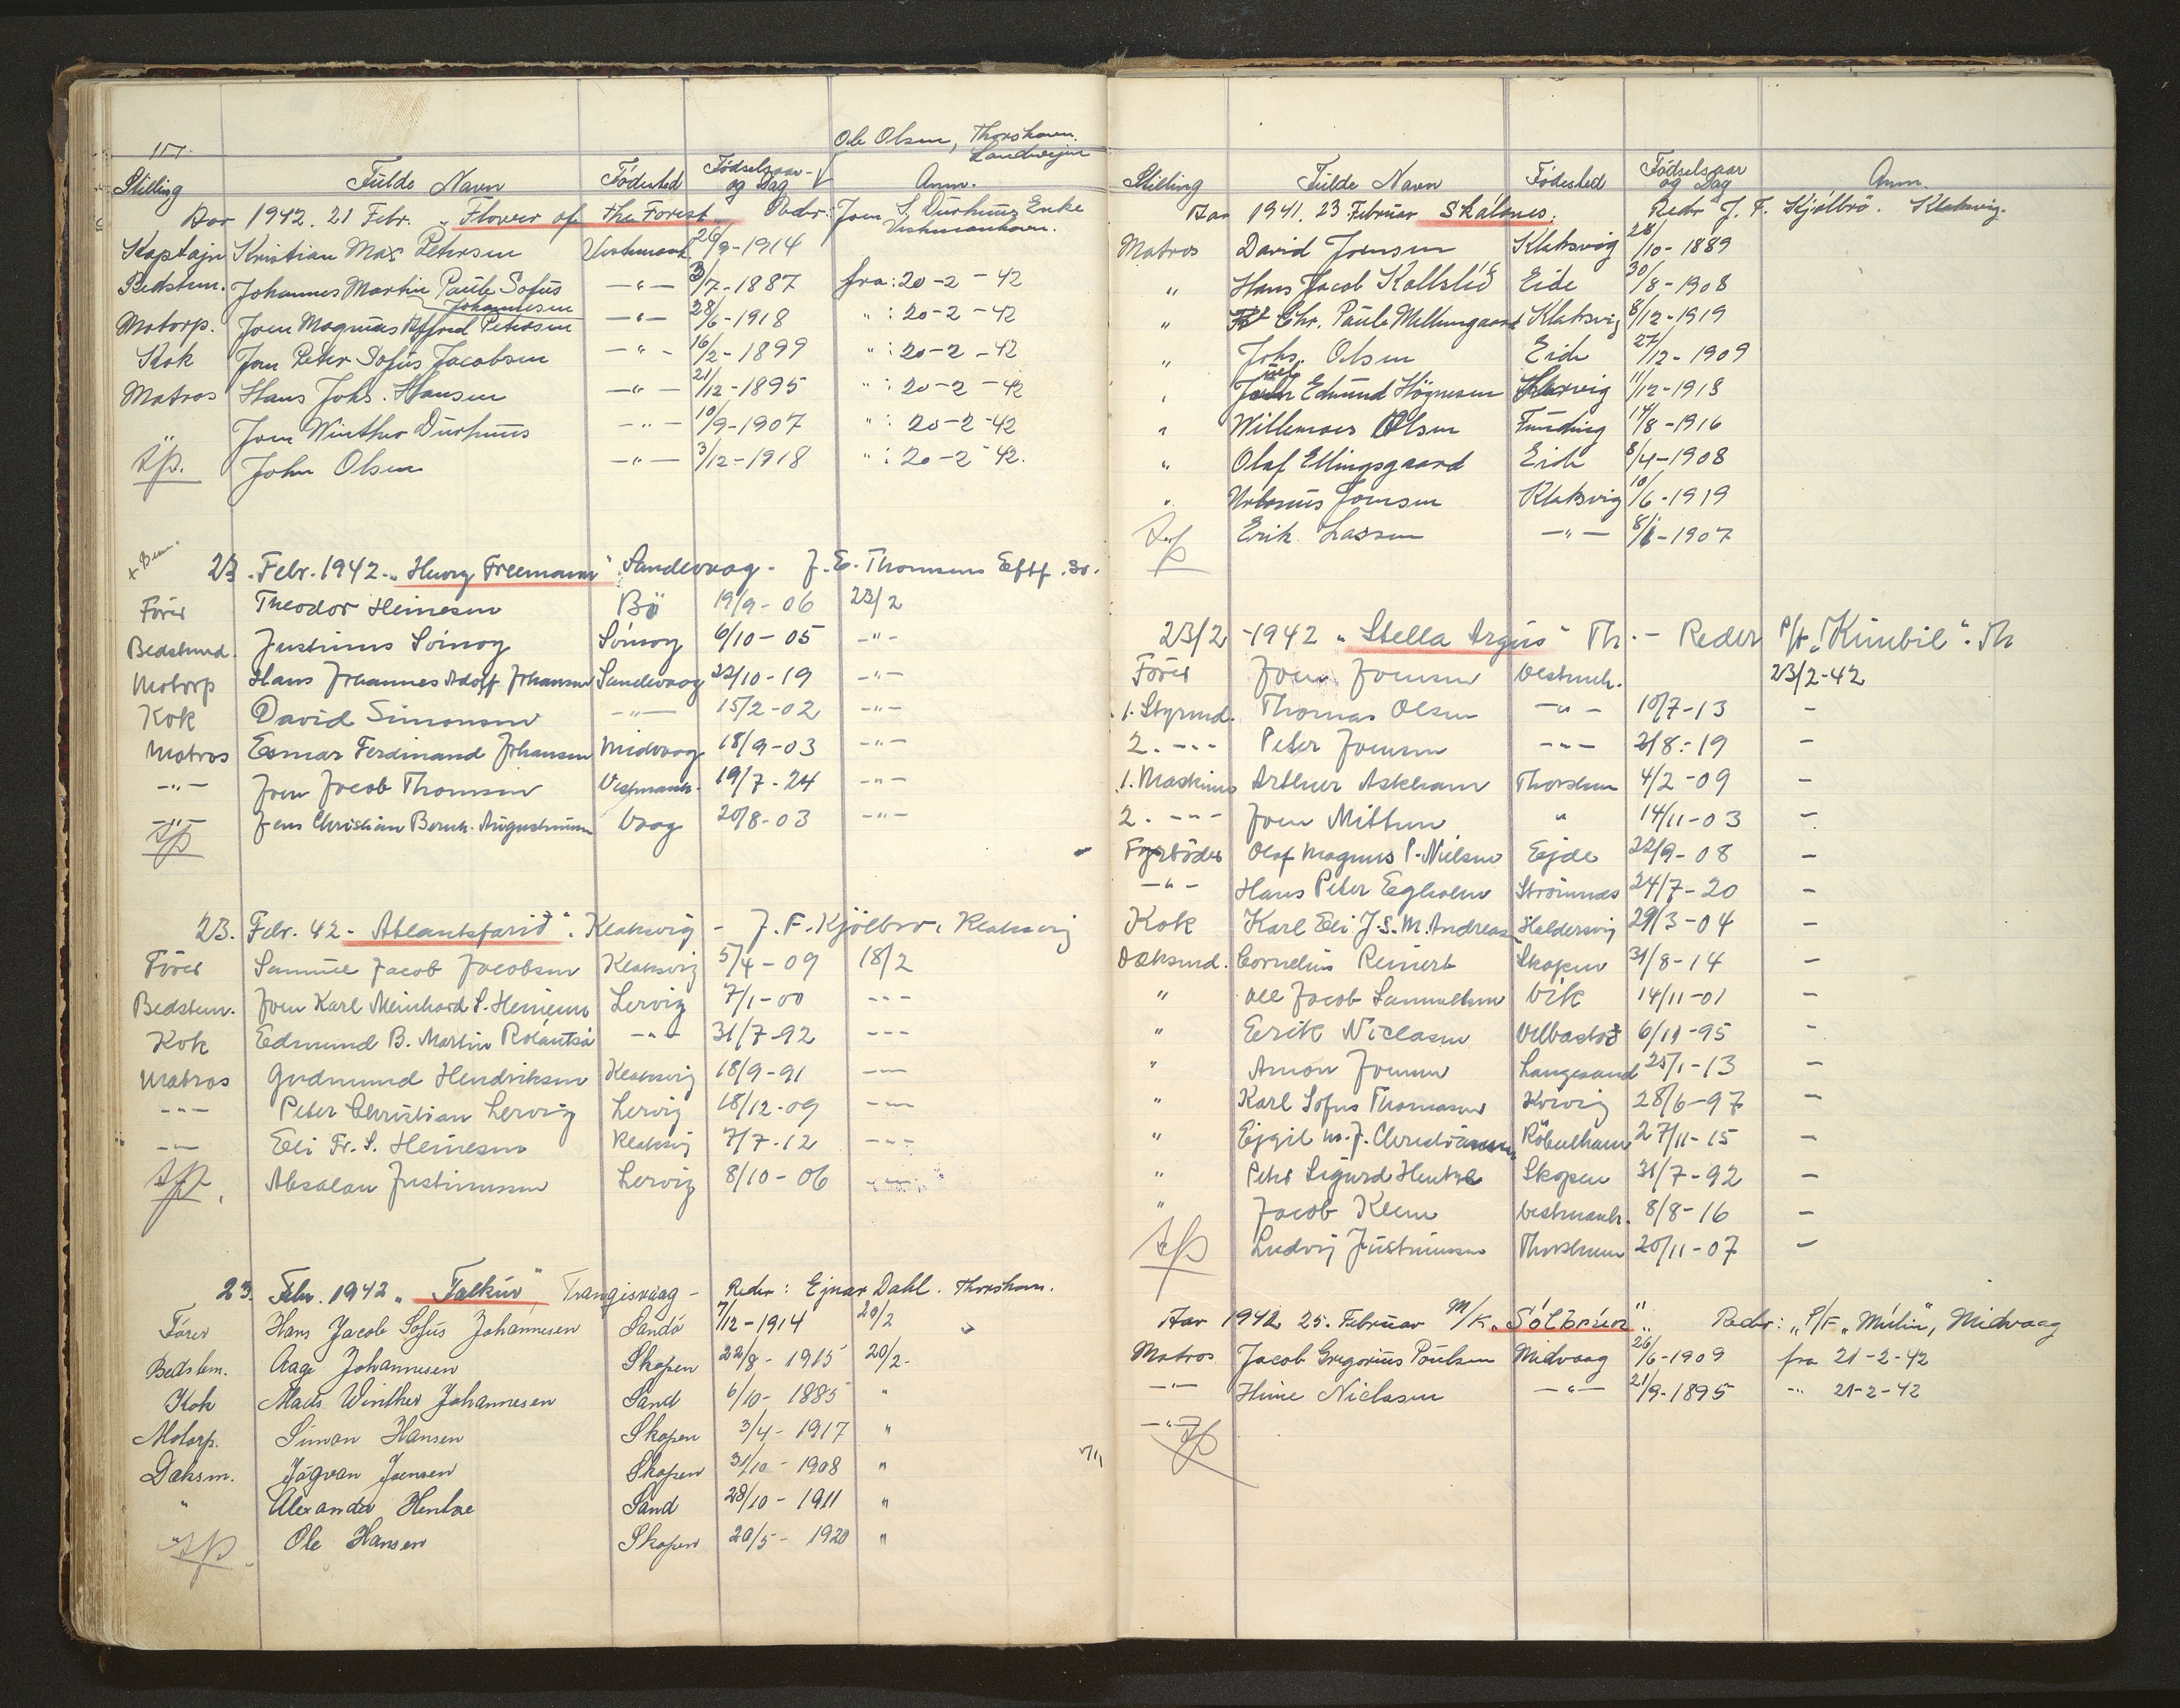 Ole Olsen, Thorshavn.
Stilling Fulde Navn Fødested Fødselsaar- og Dag Anm.
Aar 1942. 21 Febr. „Flower of the Forest„ Reder: Joen S. Durhuus Enke
Vestmanhavn.
Kaptajn Kristian Max Petersen Vestmanh. 26/9-1914
Bedstm. Johannes Martin Paule Sofus —"— 3/7-1887 fra: 20-2-42
Johannesen
Motorp. Joen Magnus Petersen —"— 28/6-1918 " : 20-2-42
Kok Jens Peter Sofus Jacobsen —"— 16/2-1899 " : 20-2-42
Matros Hans Johs. Hansen —"— 21/12-1895 " : 20-2-42
" Joen Winther Durhuus —"— 10/9-1907 " : 20-2-42
John Olsen —"— 3/12-1918 " : 20-2-42.
23. Febr. 1942. „Henry Freemann" Sandevaag - J. E. Thomsens Eftf.
Förer Theodor Heinesen Bö 19/9-06 23/2
Bedstmd. Justinus Sörvog Sörvog 6/10-05 -"-
Motorp Hans Johannes Adolf Johansen Sandevaag 22/10-19 -"-
Kok David Simonsen -"- 15/2-02 -"-
Matros Esmar Ferdinand Johansen Midvaag 18/9-03 -"-
-"- Joen Jacob Thomsen Vestmanh. 19/7-24 -"-
-"- Jens Christian Bernh. Augustinussen Vaag 20/8-03 -"-
23. Febr. 42 - Atlantsfarið". Klaksvig - J. F. Kjölbro, Klaksvig
Förer Samuel Jacob Jacobsen Klaksvig 5/4-09 18/2
Bedstem. Joen Karl Meinhard S. Heinesen Lervig 7/1-00 -"-
Kok Edmund B. Martin Rólantsá -"- 31/7-92 -"-
Matros Gudmund Hendriksen Klaksvig 18/9-91 -"-
-"- Peter Christian Lervig Lervig 18/12-09 -"-
-"- Eli Fr. S. Heinesen Klaksvig 7/7-12 -"-
Absalon Justinussen Lervig 8/10-06 -"-
23. Febr. 1942 „Falkur" Trangisvaag - Reder: Ejnar Dahl. Thorshavn.
Förer Hans Jacob Sofus Johannesen Sandö 7/12-1914 20/2
Bedstem. Aage Johannesen Skopen 22/8-1915 20/2-
Kok Mads Winther Johannesen Sand 6/10-1885 "
Motorp. Simon Hansen Skopen 3/4-1917 "
Daksm. Jógvan Joensen Skopen 31/10-1908 "
" Alexander Hentze Sand 28/10-1911 "
" Ole Hansen Skopen 20/5-1920 "
Stilling Fulde Navn Fødested Fødselsaar og Dag Anm.
Aar 1941. 23. Februar Skálanes. Reder J. F. Kjölbrö. Klaksvig.
Matros David Joensen Klaksvig 28/10-1889
" Hans Jacob Kallslíð Eide 30/8-1908
" Chr. Paule Mellemgaard Klaksvig 8/12-1919
" Johs. Olsen Eide 27/12-1909
" Edmund Högnesen 11/12-1913
" Willemoes Olsen Funding 14/8-1916
" Olaf Ellingsgaard Eide 8/4-1908
" Urbanus Joensen Klaksvig 10/6-1919
Erik Lassen —"— 8/1-1907
23/2-1942 „Stella Argus" Th. - Reder P/f. „Kimbil". Th
Förer Joen Joensen Vestmh. 23/2-42
1. Styrmd. Thomas Olsen -"- 10/7-13 -
2. -"- Peter Joensen -"- 2/8-19 -
1. Maskinm Arthur Askham Thorshavn 4/2-09 -
2. -"- Joen Mitten " 14/11-03 -
Fyrböder Olaf Magnus P. Nielsen Ejde 22/9-08 -
-"- Hans Peter Egholm Strömnæs 24/7-20 -
Kok Karl Eli J. S. M. Andreasen Haldersvig 29/3-04 -
Dæksmd. Cornelius Reinert Skopen 31/8-14 -
" Ole Jacob Samuelsen Vik 14/11-01 -
" Erik Niclasen Velbastað 6/11-95 -
" Amon Joensen Langesand 25/1-13 -
" Karl Sofus Thomasen Kvivig 28/6-97 -
" Ejgil M. J. Christiansen Köbenhavn 27/11-15 -
" Peter Sigurd Hentze Skopen 31/7-92 -
" Jacob Klein Vestmanh. 8/8-16 -
Ludvig Justinussen Thorshavn 20/11-07 -
Aar 1942 25. Februar M/K „Sólbrún" Reder: „P/F „Múlin", Midvaag
Matros Jacob Gregorius Poulsen Midvaag 26/6-1909 fra 21-2-42
—"— Hine Niclasen —"— 21/9-1895 -"- 21-2-42
—"—